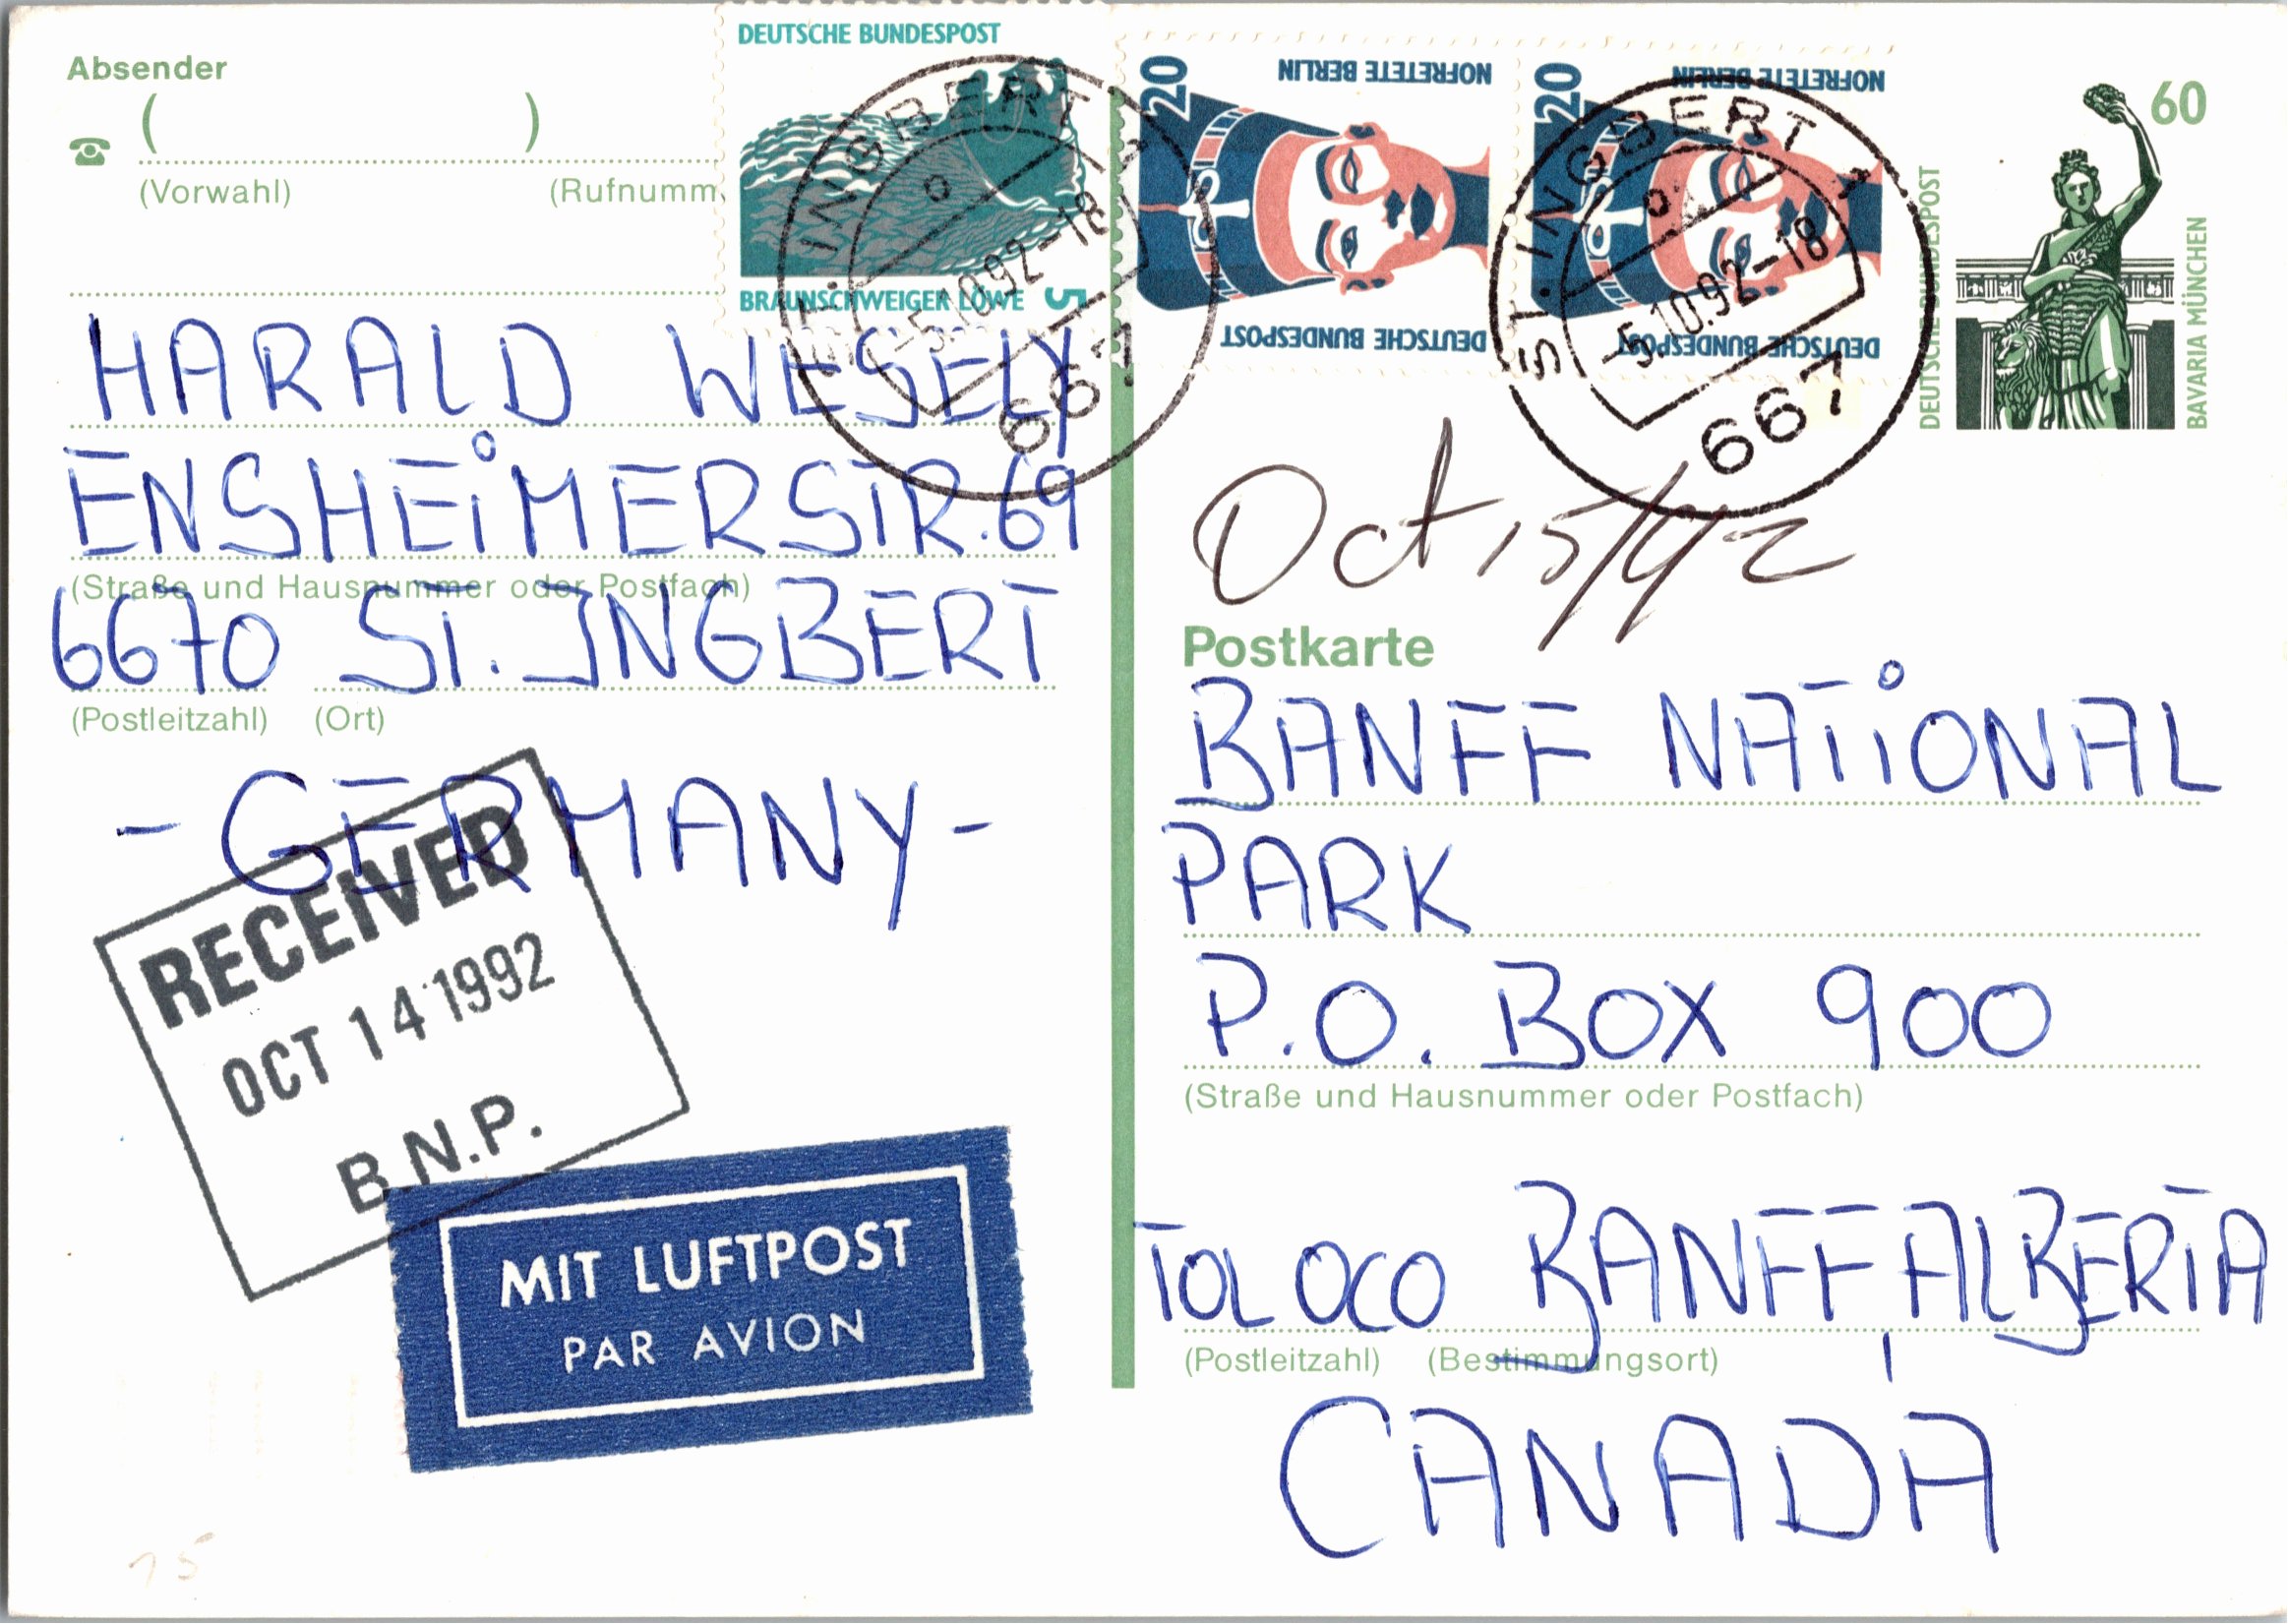 Absender
( )
(Vorwahl) (Rufnumm
DEUTSCHE BUNDESPOST
BRAUNSCHWEIGER LÖWE 5
20 NOFRETETE BERLIN
DEUTSCHE BUNDESPOST
20 NOFRETETE BERLIN
DEUTSCHE BUNDESPOST
60
DEUTSCHE BUNDESPOST
BAVARIA MÜNCHEN
ST. INGBERT 1
-5.10.92-18
667
ST. INGBERT 1
-5.10.92-18
667
HARALD WESELY
ENSHEIMERSTR. 69
(Straße und Hausnummer oder Postfach)
6670 ST. INGBERT
(Postleitzahl) (Ort)
- GERMANY -
RECEIVED
OCT 14 1992
B.N.P.
MIT LUFTPOST
PAR AVION
15
Oct 15/92
Postkarte
BANFF NATIONAL
PARK
P.O. BOX 900
(Straße und Hausnummer oder Postfach)
TOL OCO BANFF, ALBERTA
(Postleitzahl) (Bestimmungsort)
CANADA